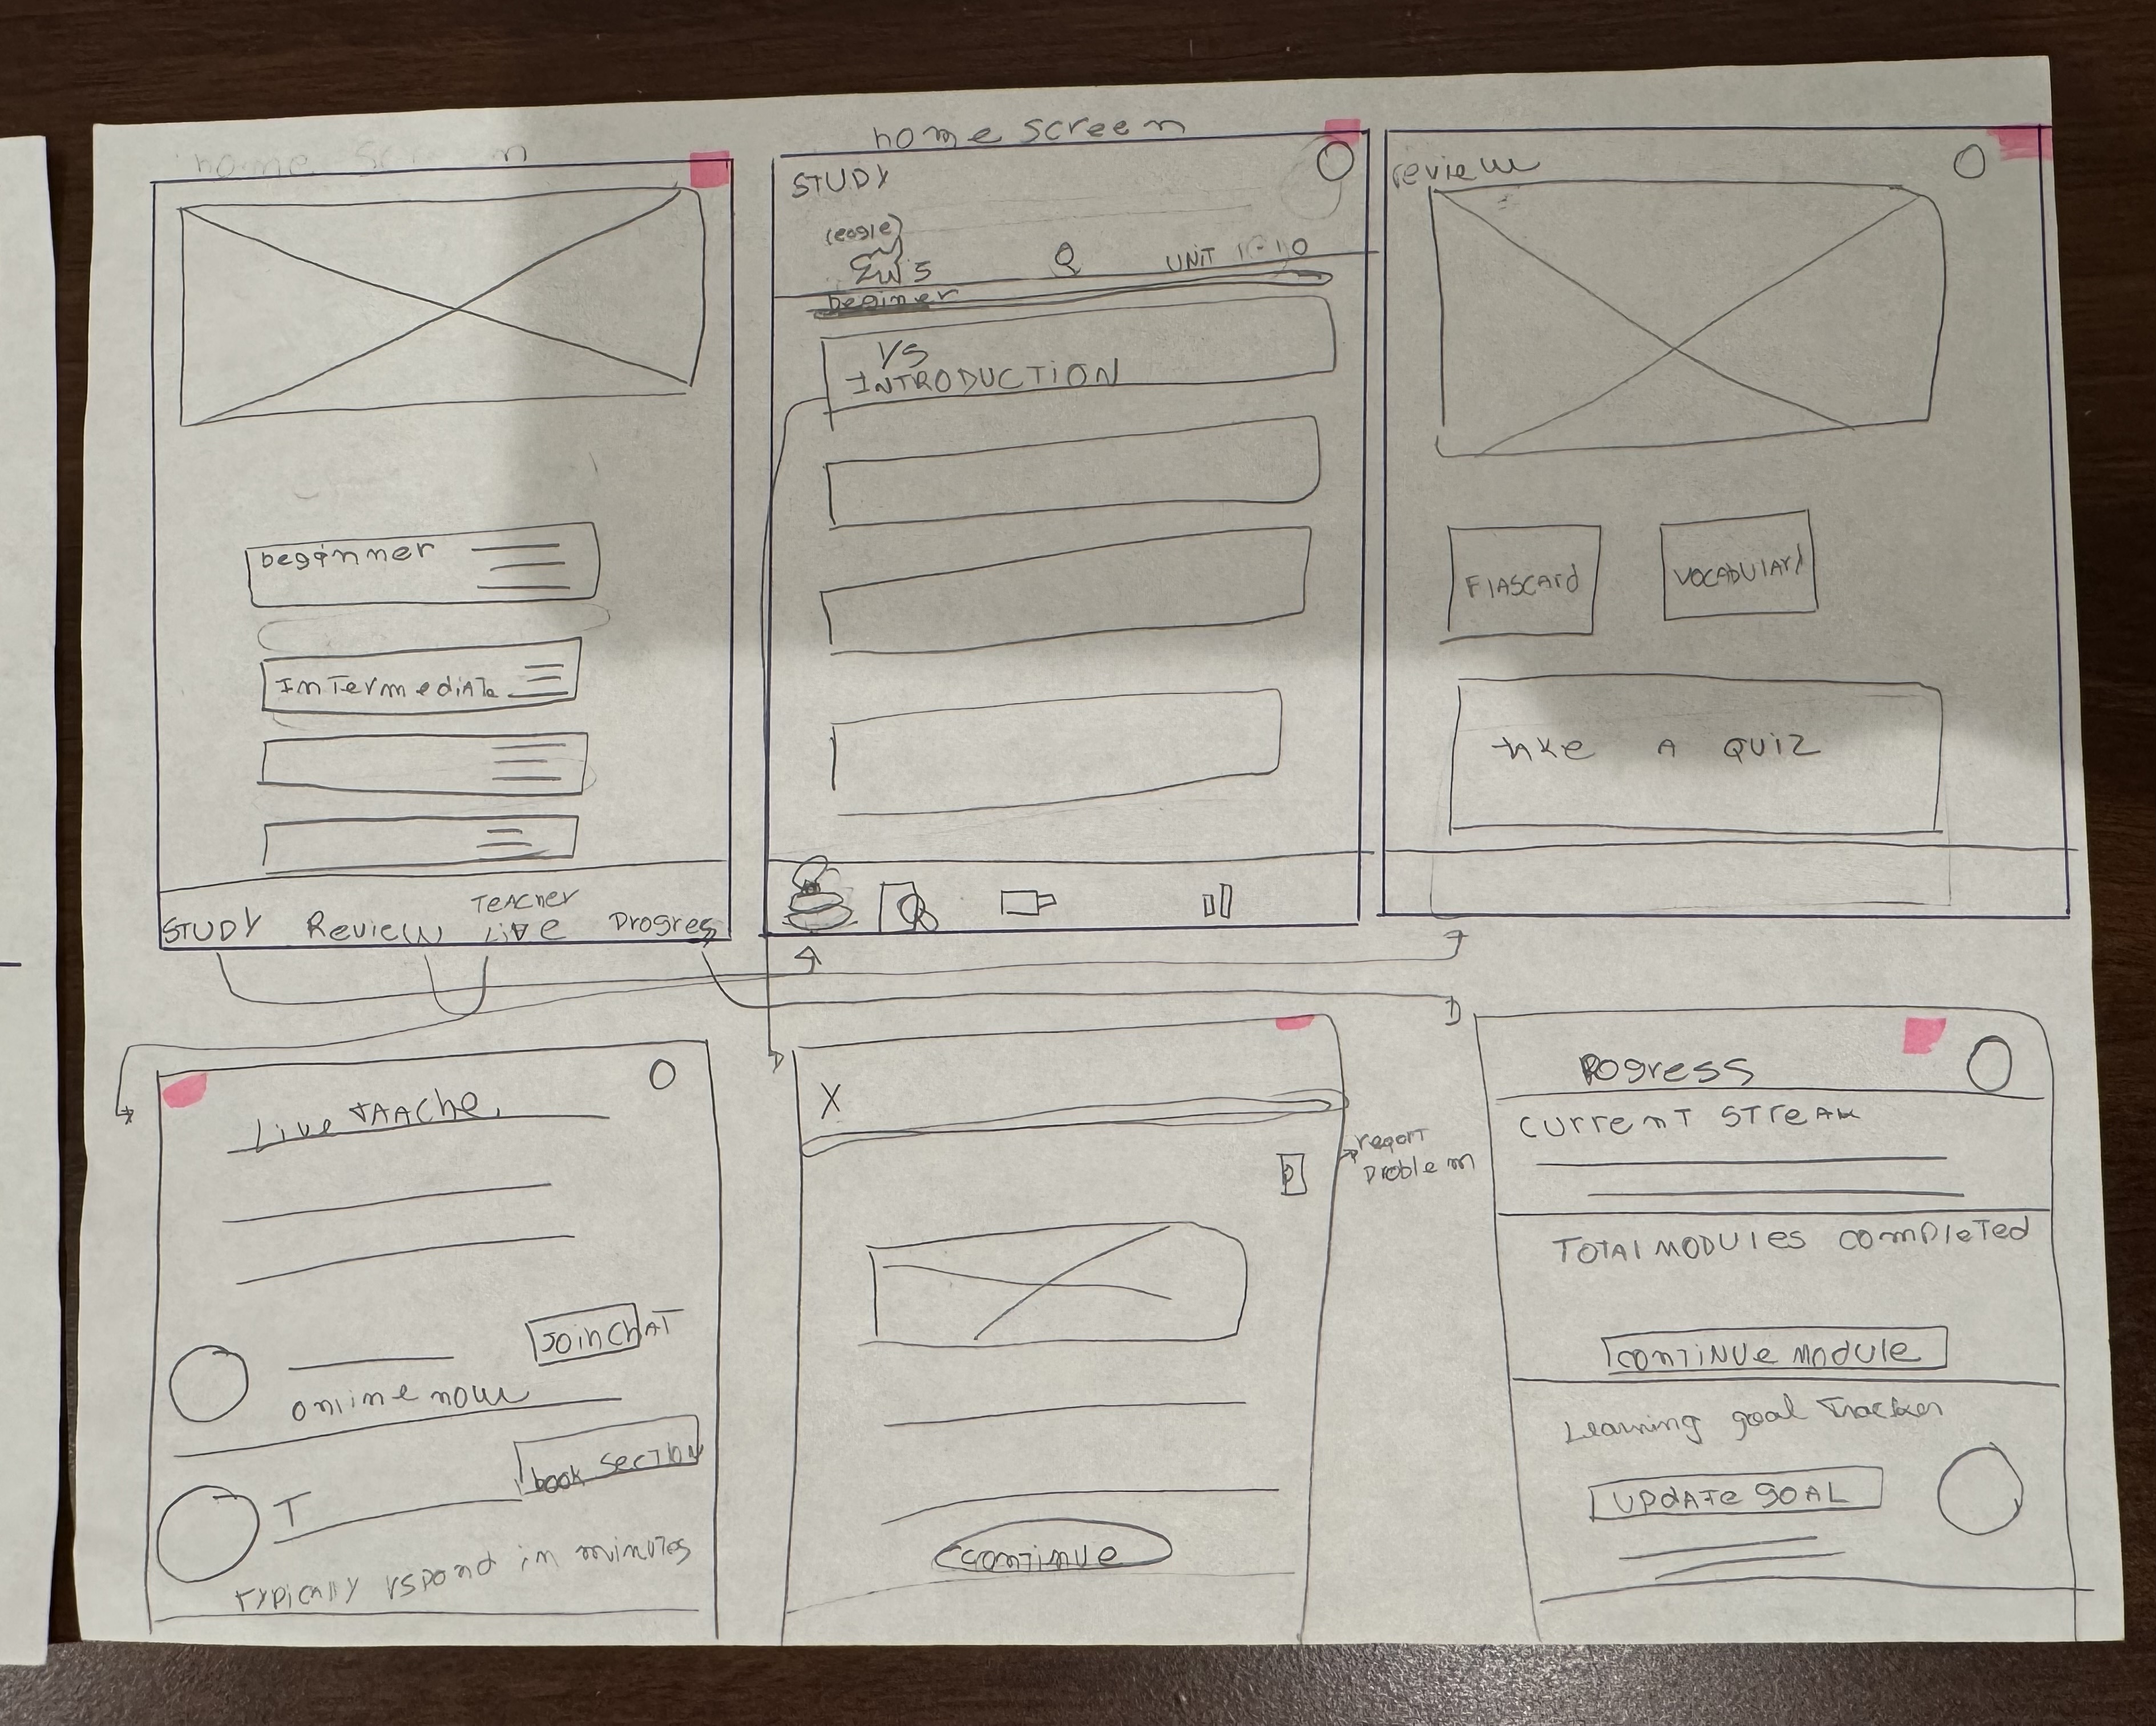 home screen
beginner
Intermediate
STUDY Review Teacher Live Progres
home screen
STUDY
(eagle)
5 UNIT 1-10
beginer
VS
INTRODUCTION
review
Flascard
vocabulary
take a quiz
Live
online now
Join chat
T
book section
typically rspond in minutes
X
report
problem
continue
Rogress
current streak
Total modules completed
continue module
Learning goal Tracker
update goal